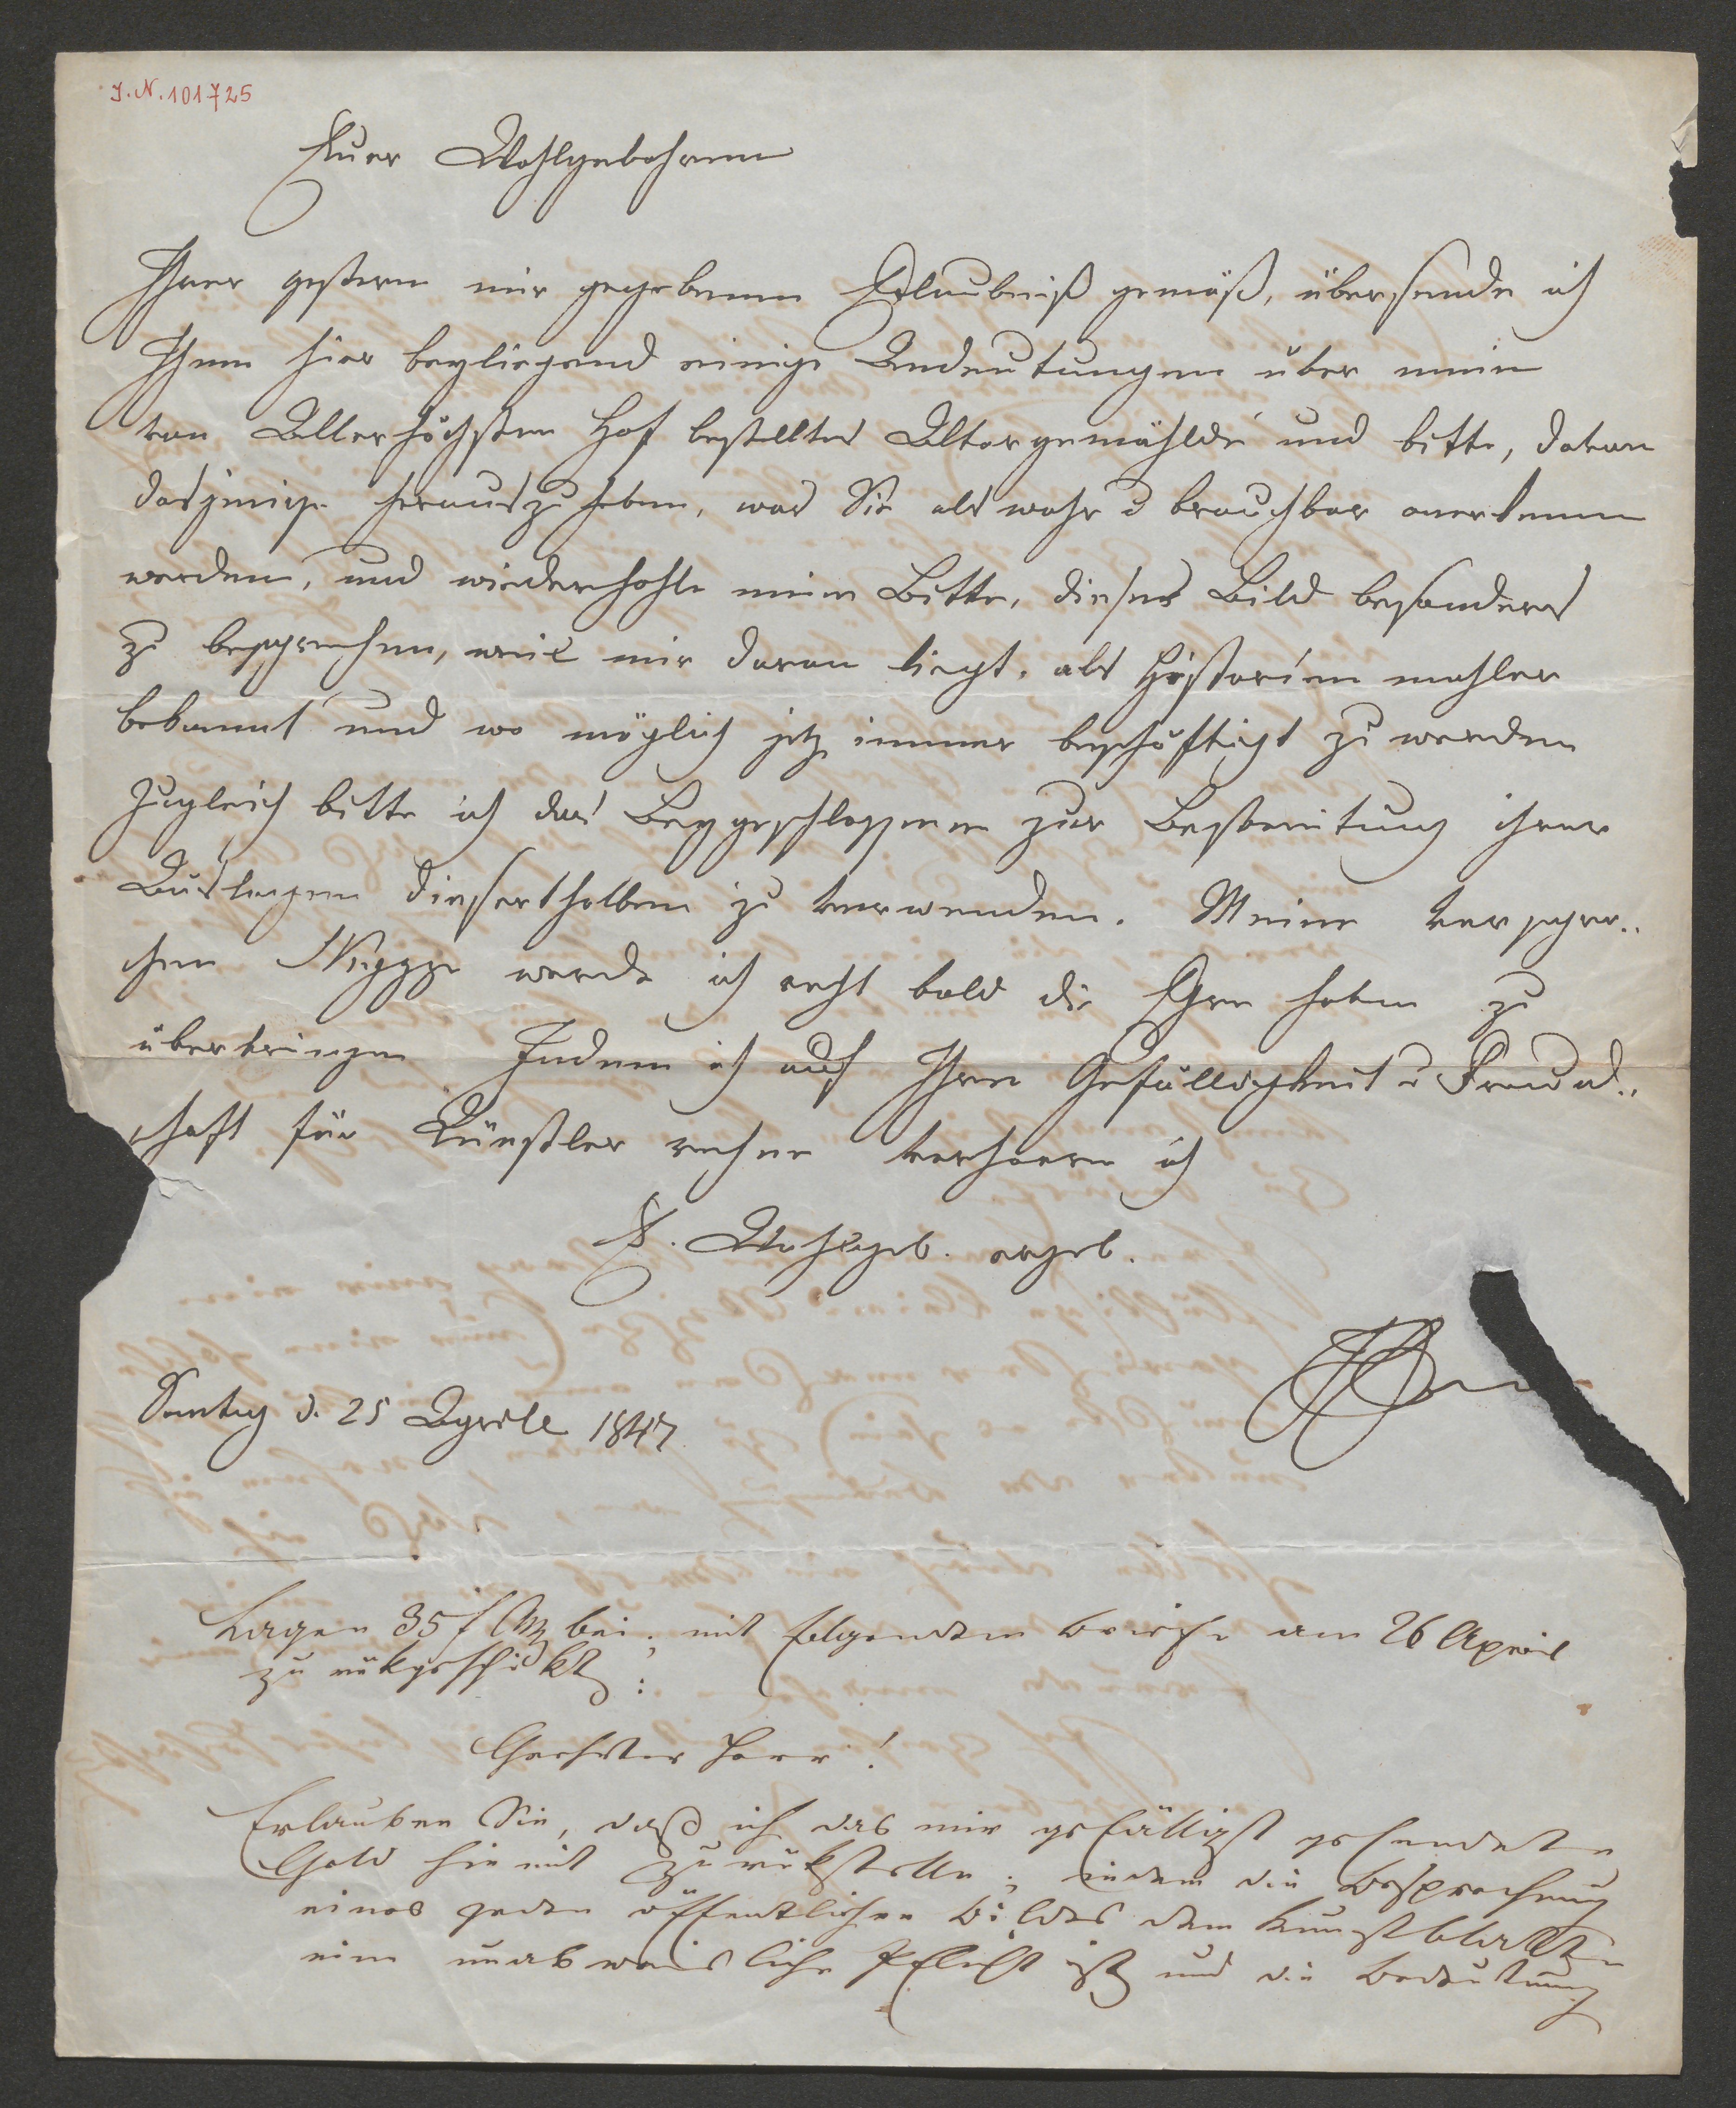 J.N. 101725
Euer Wohlgebohren
Ihrer gestern mir gegebenen Erlaubniß gemäß, übersende ich
Ihnen hier beyliegend einige Andeutungen über mein
von Allerhöchsten Hof bestelltes Altargemählde und bitte, davon
dasjenige herauszuheben, was Sie als wahr u brauchbar anerkennen
werden, und wiederhohle meine Bitte, dieses Bild besonders
zu besprechen, weil mir daran liegt, als Historienmahler
bekannt und wo möglich jetz immer beschäftigt zu werden
Zugleich bitte ich das Beygeschlossene zur Bestreitung ihrer
Auslagen dieserthalben zu verwenden. Meine verspro..
chene Skizze werde ich recht bald die Ehre haben zu
überbringen Indem ich auf Ihre Gefälligkeit u Freund..
schaft für Künstler rechne verharre ich
E. Wohlgeb. ergeb.
Sontag d. 25 Aprill 1847
Lagen 35 f CM bei; mit folgendem Briefe am 26 April
zurükgeschikt:
Geehrter Herr!
Erlauben Sie, daß ich das mir gefälligst gesendete
Geld hiemit zurükstelle; indem die Besprechung
eines jeden öffentlichen Bildes dem Kunstblatte
eine unabweisliche Pflicht ist und die Bedeutung